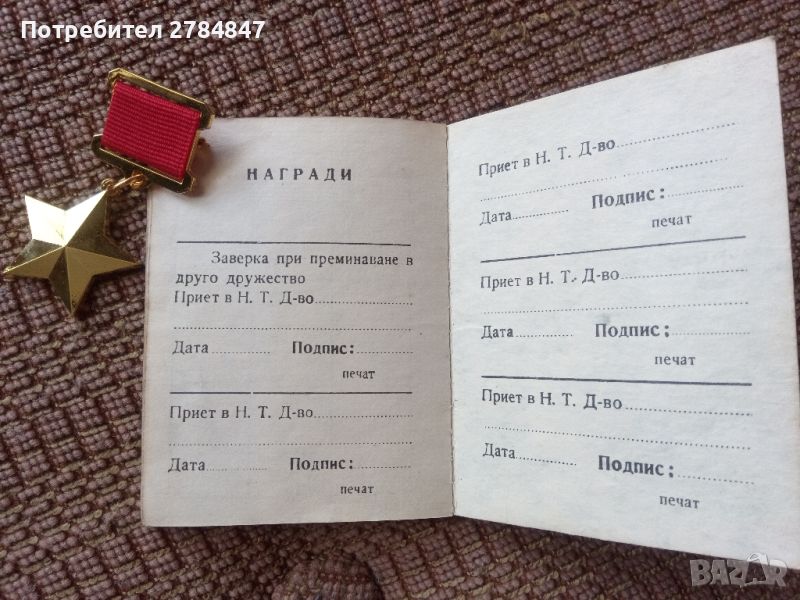 Потребител 2784847
НАГРАДИ
Заверка при преминаване в
друго дружество
Приет в Н. Т. Д-во
Дата Подпис:
печат
Приет в Н. Т. Д-во
Дата Подпис:
печат
Приет в Н. Т. Д-во
Дата Подпис:
печат
Приет в Н. Т. Д-во
Дата Подпис:
печат
Приет в Н. Т. Д-во
Дата Подпис:
печат
BAZAR